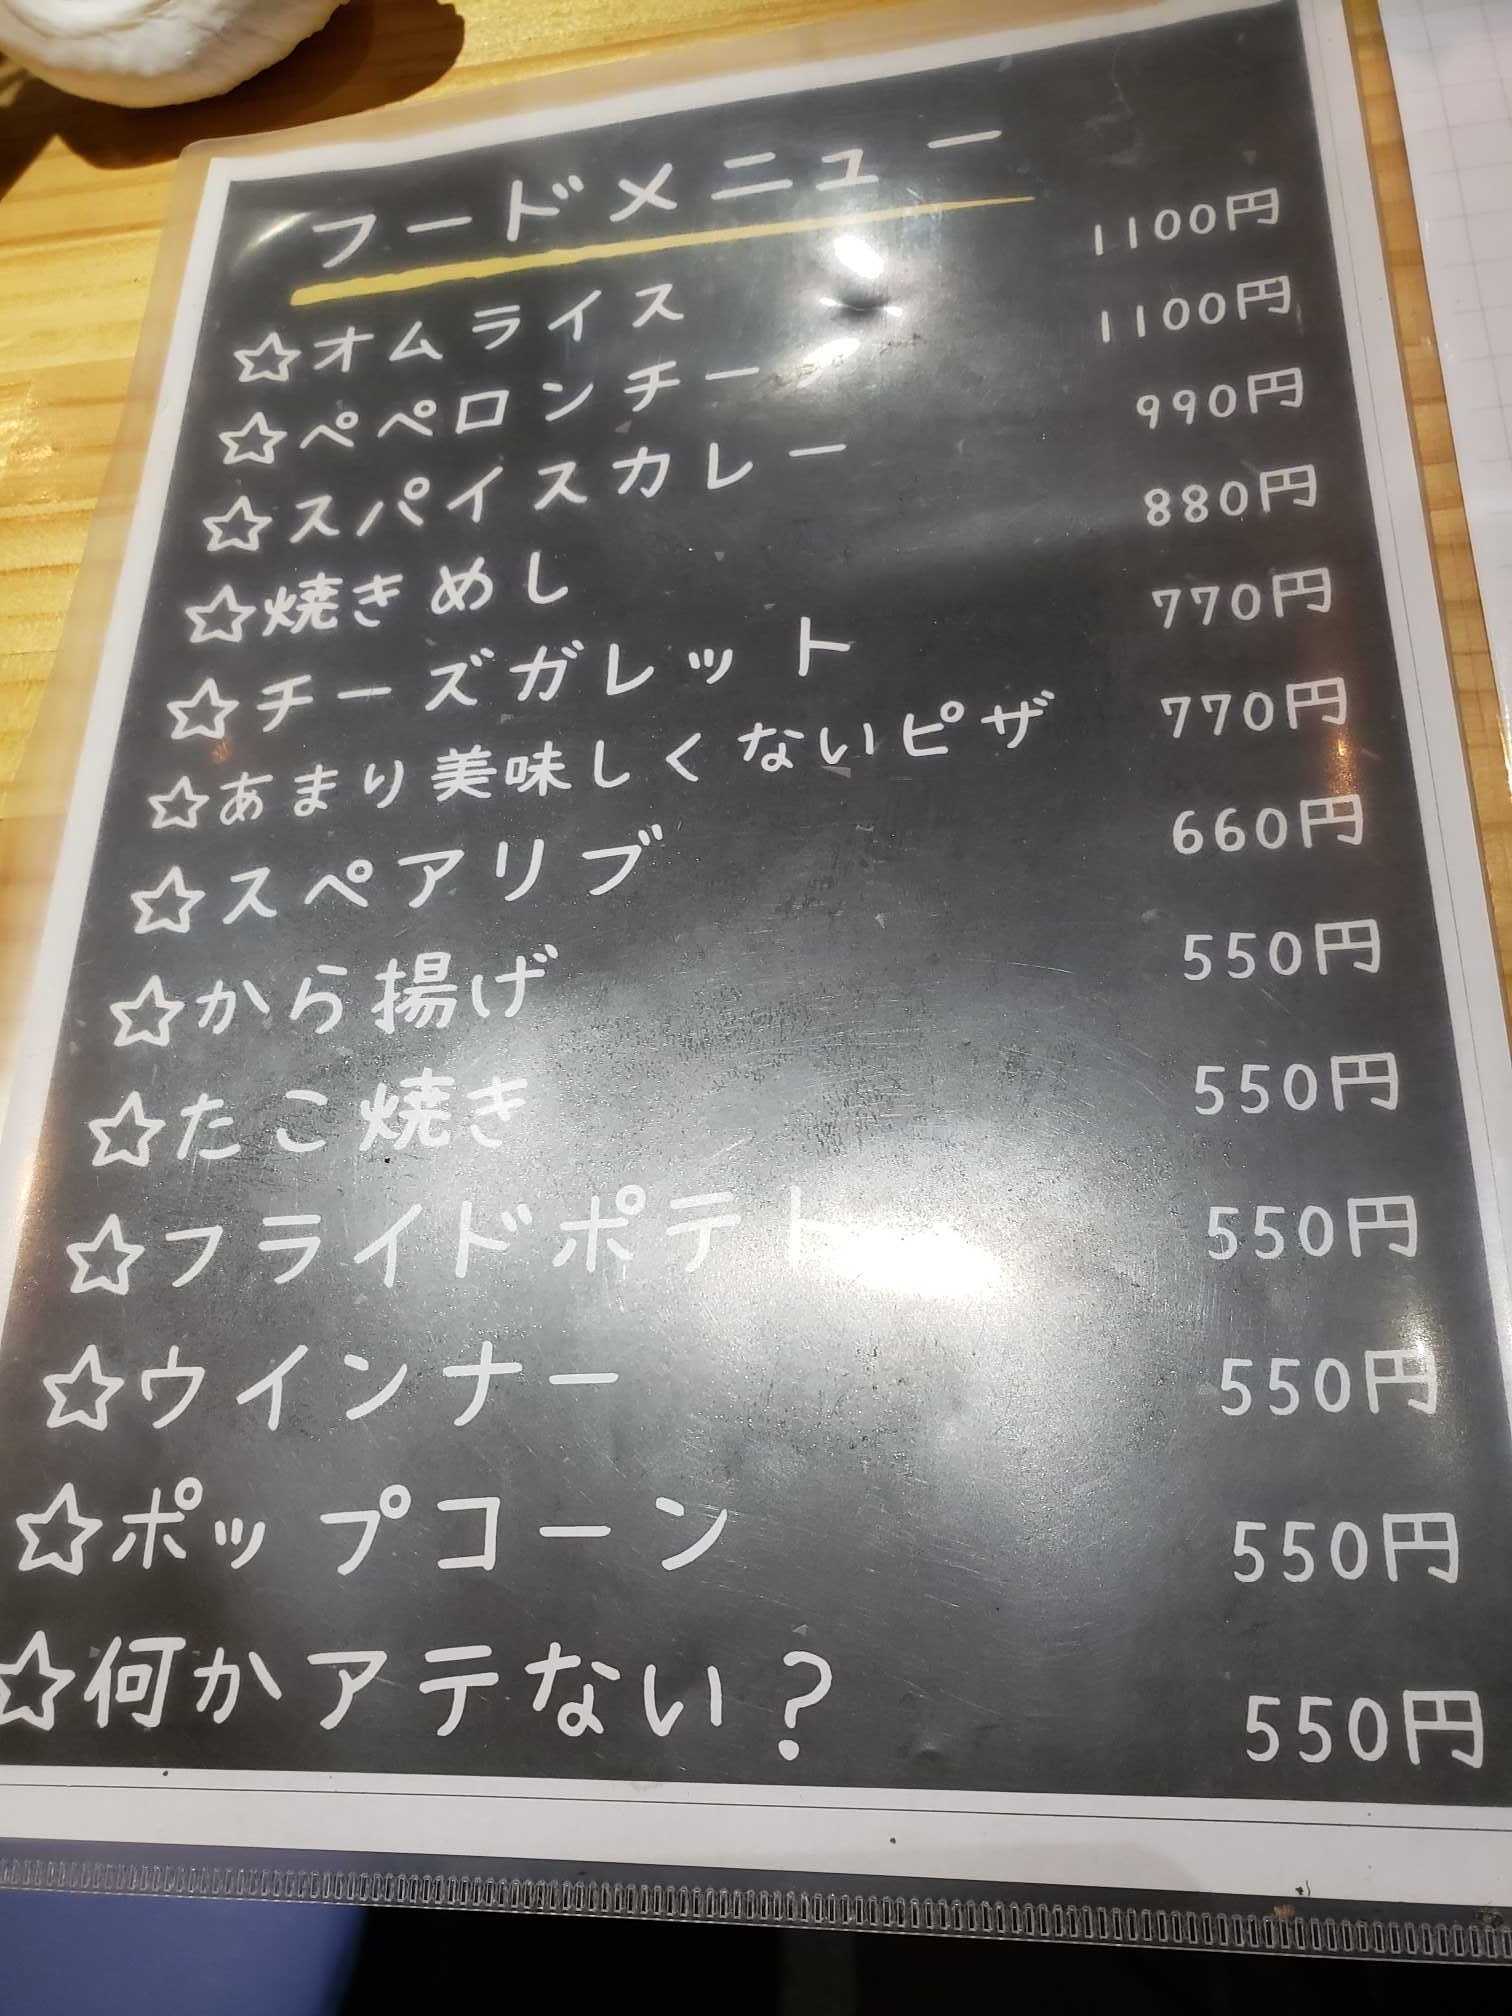 フードメニュー
☆オムライス 1100円
☆ペペロンチーノ 1100円
☆スパイスカレー 990円
☆焼きめし 880円
☆チーズガレット 770円
☆あまり美味しくないピザ 770円
☆スペアリブ 660円
☆から揚げ 550円
☆たこ焼き 550円
☆フライドポテト 550円
☆ウインナー 550円
☆ポップコーン 550円
☆何かアテない？ 550円